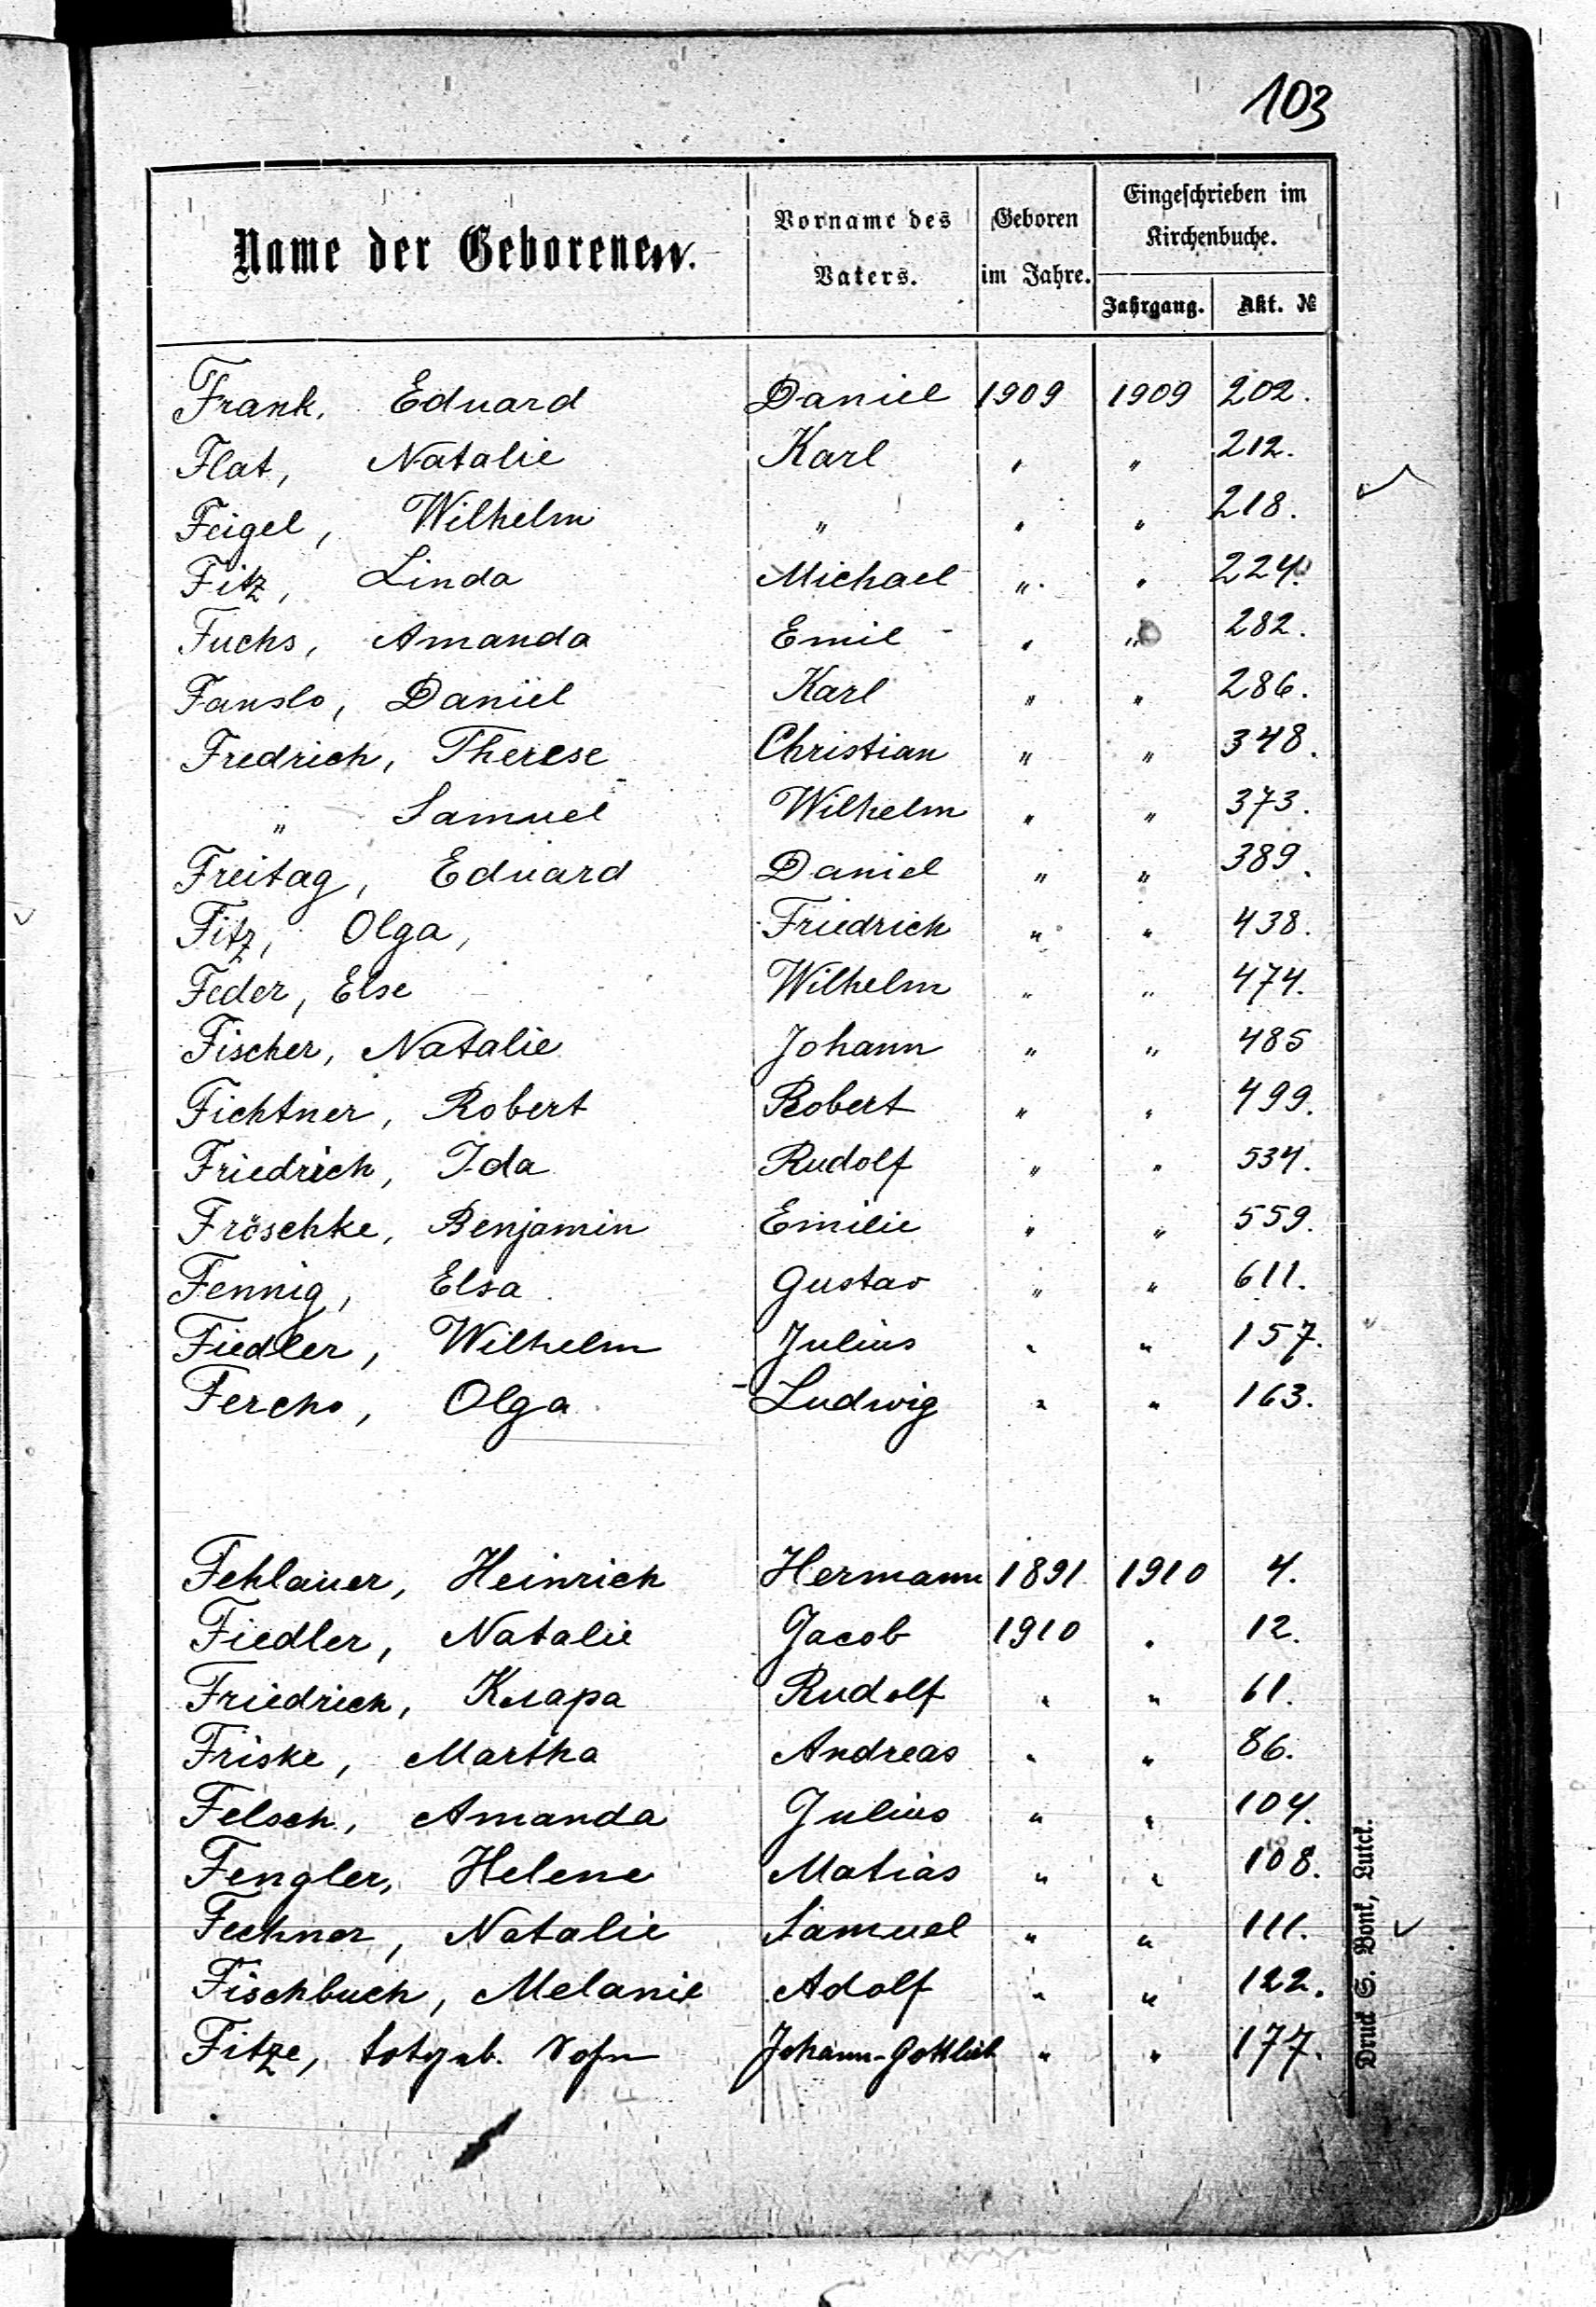 103
Name der Geborenen. Vorname des Vaters. Geboren im Jahre. Eingeschrieben im Kirchenbuche.
Jahrgang. Akt. №
Frank, Eduard Daniel 1909 1909 202.
Flat, Natalie Karl " " 212.
Feigel, Wilhelm " " " 218.
Fitz, Linda Michael " " 224.
Fuchs, Amanda Emil " " 282.
Fanslo, Daniel Karl " " 286.
Fredrich, Therese Christian " " 348.
" Samuel Wilhelm " " 373.
Freitag, Eduard Daniel " " 389.
Fitz, Olga, Friedrich " " 438.
Feder, Else Wilhelm " " 474.
Fischer, Natalie Johann " " 485
Fichtner, Robert Robert " " 499.
Friedrich, Ida Rudolf " " 534.
Fröschke, Benjamin Emilie " " 559.
Fennig, Elsa Gustav " " 611.
Fiedler, Wilhelm Julius " " 157.
Fercho, Olga Ludwig " " 163.
Fehlauer, Heinrich Hermann 1891 1910 4.
Fiedler, Natalie Jacob 1910 " 12.
Friedrich, Клара Rudolf " " 61.
Friske, Martha Andreas " " 86.
Felsch, Amanda Julius " " 104.
Fengler, Helene Matias " " 108.
Fechner, Natalie Samuel " " 111.
Fischbuch, Melanie Adolf " " 122.
Fitze, totgeb. Sohn Johann-Gottlieb " " 177.
Druck S. Bonk, Lutck.